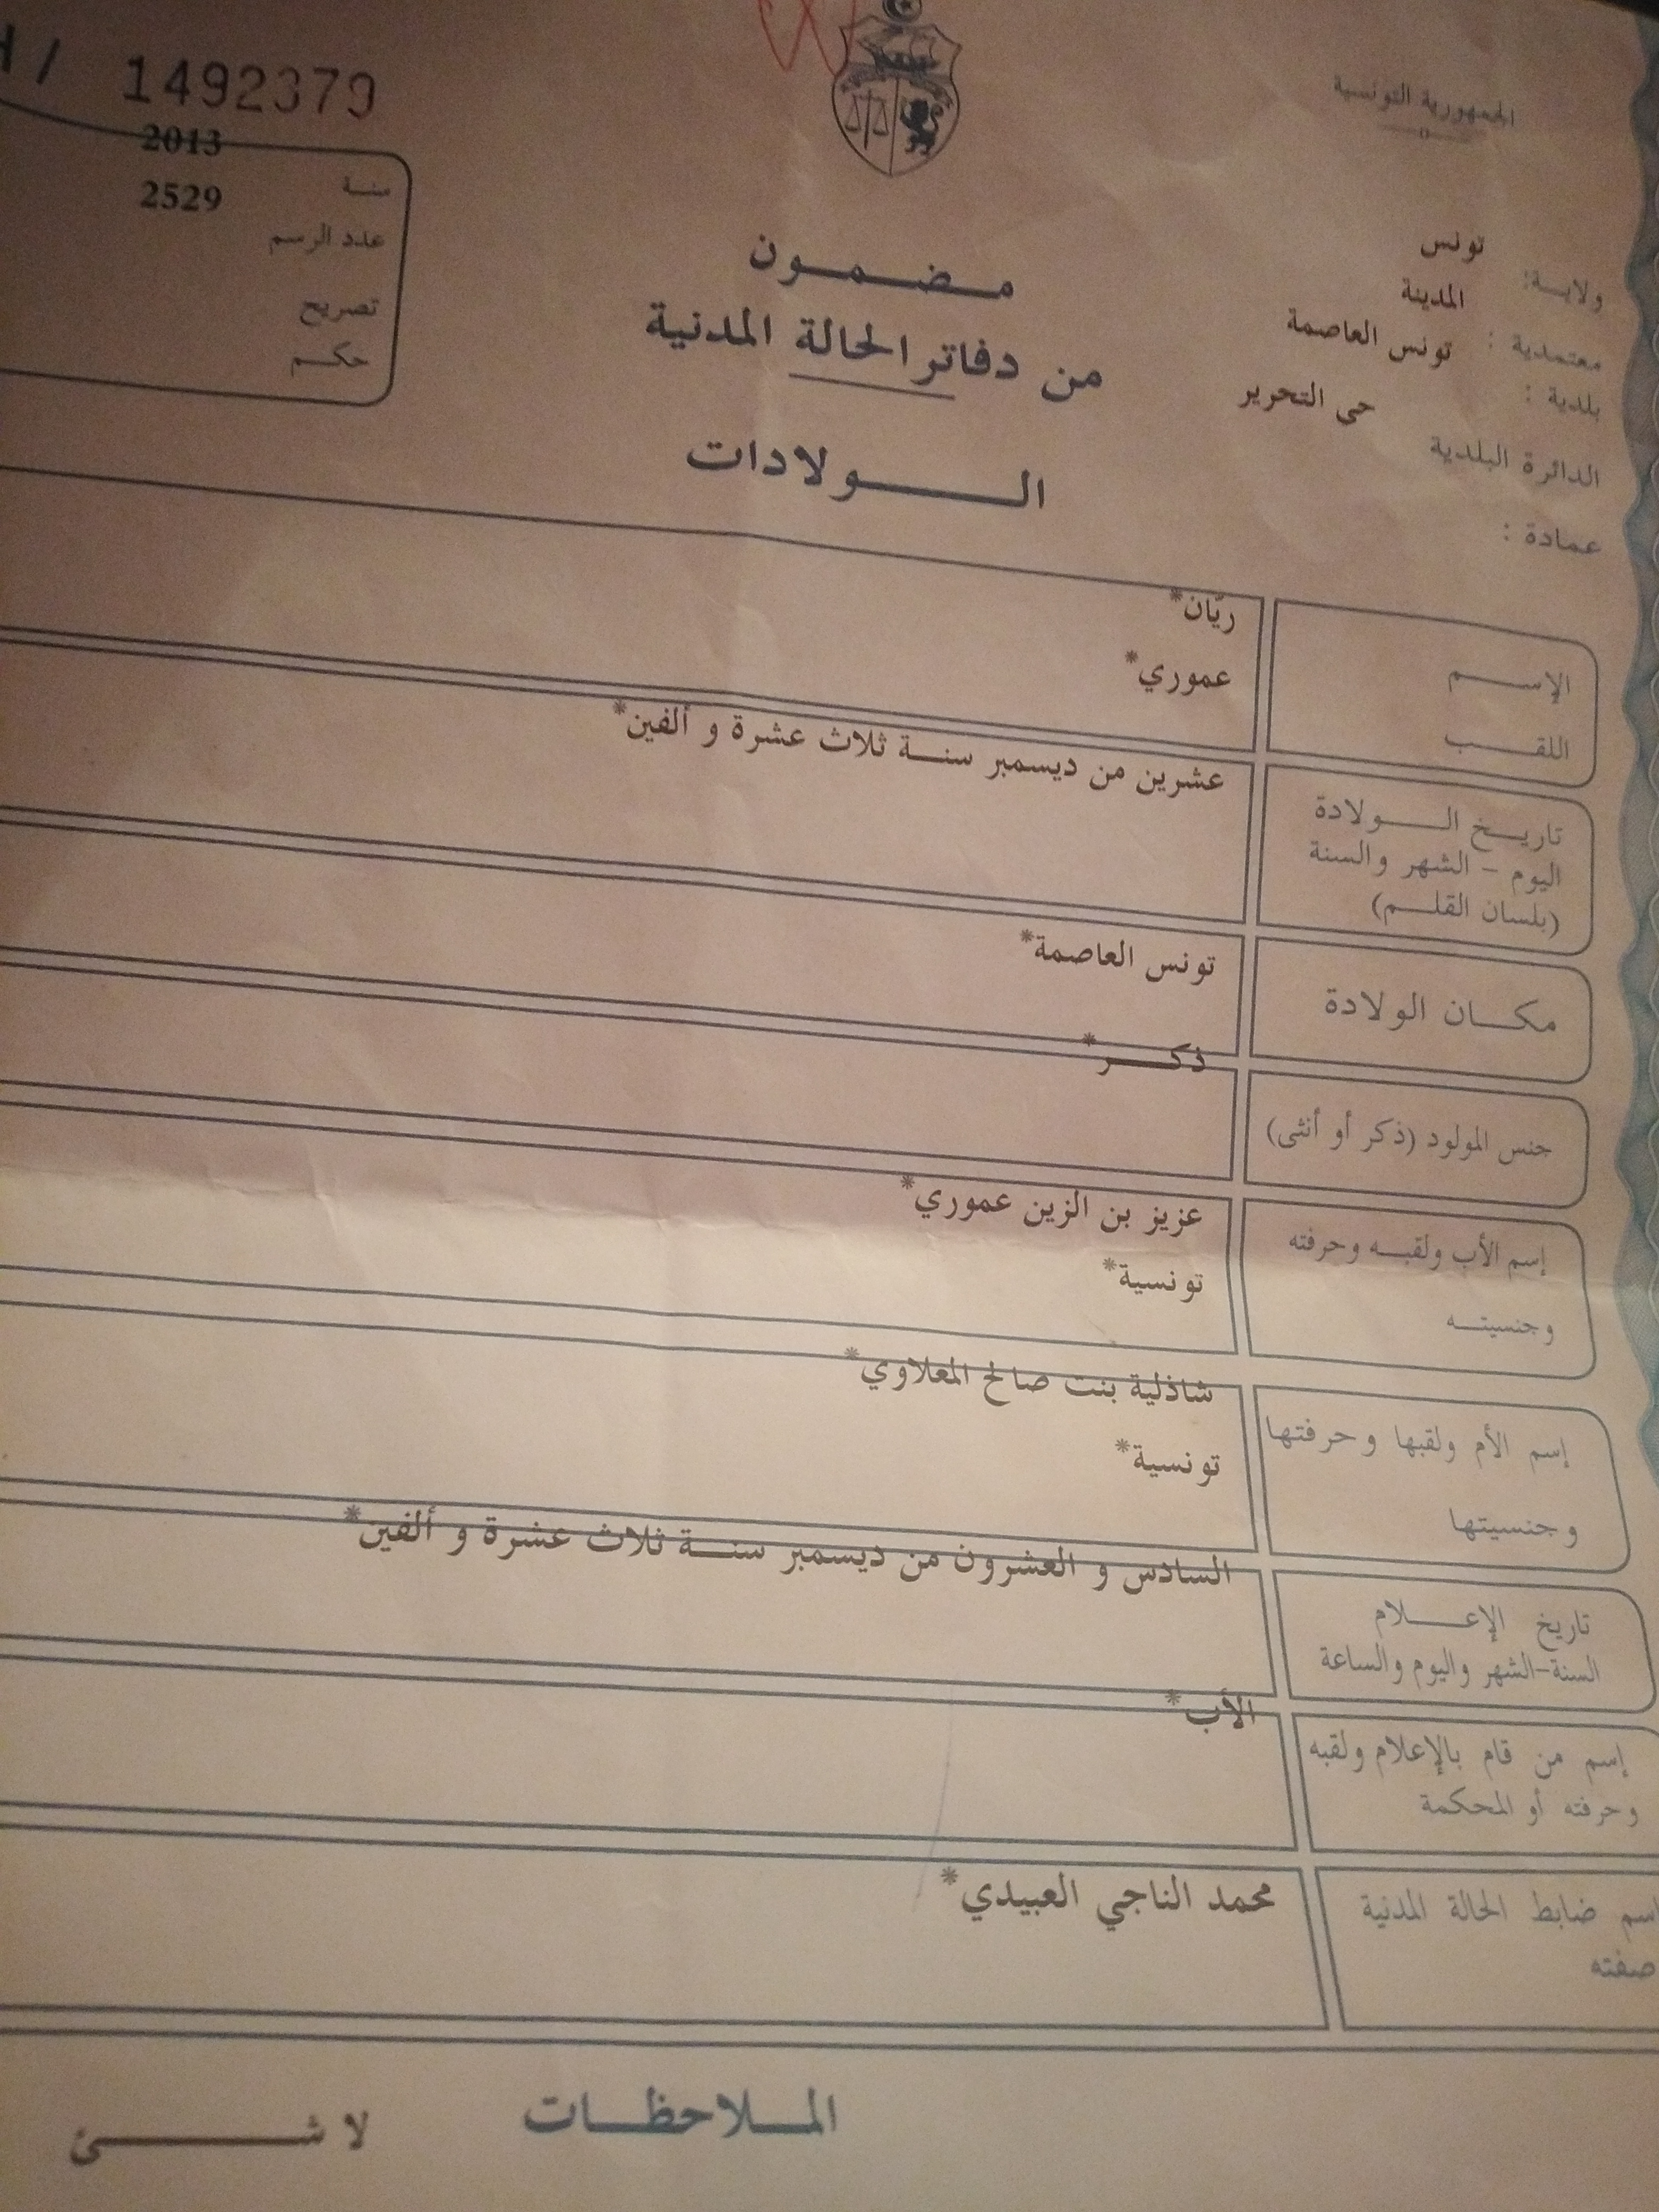 الجمهورية التونسية
H / 1492379
سنة 2013
عدد الرسم 2529
تصريح
حكم
ولاية: تونس
معتمدية : المدينة
بلدية : تونس العاصمة
الدائرة البلدية حى التحرير
عمادة :
مضمون
من دفاتر الحالة المدنية
الولادات
الإسم ريّان*
اللقب عموري*
تاريخ الولادة
اليوم - الشهر والسنة
(بلسان القلم)
عشرين من ديسمبر سنة ثلاث عشرة و ألفين*
مكان الولادة تونس العاصمة*
جنس المولود (ذكر أو أنثى) ذكر*
إسم الأب ولقبه وحرفته عزيز بن الزين عموري*
وجنسيته تونسية*
إسم الأم ولقبها وحرفتها شاذلية بنت صالح المعلاوي*
وجنسيتها تونسية*
تاريخ الإعلام
السنة-الشهر واليوم والساعة
السادس و العشرون من ديسمبر سنة ثلاث عشرة و ألفين*
إسم من قام بالإعلام ولقبه
وحرفته أو المحكمة
الأب*
اسم ضابط الحالة المدنية
صفته
محمد الناجي العبيدي*
الملاحظات
لا شئ